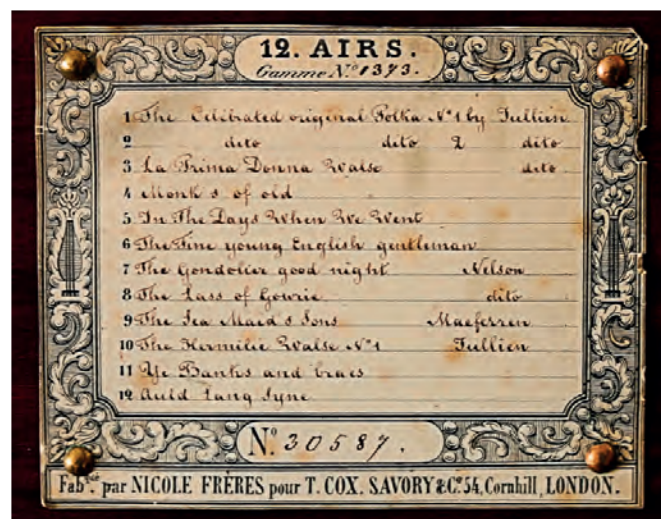 12. AIRS.
Gamme N.º 1373.
1 The Celibrated original Polka Nº 1 by Jullien
2 dito dito 2 dito
3 La Prima Donna Walse dito
4 Monk s of old
5 In The Days When We Went
6 The Fine young English gentleman
7 The Gondolier good night Nelson
8 The Lass of Gowrie dito
9 The Sea Maid s Sons Macferren
10 The Hermilie Walse Nº 1 Jullien
11 Ye Banks and braes
12 Auld Lang Syne
N.º 30587.
Fab.qué par NICOLE FRÈRES pour T. COX. SAVORY & C.º 54, Cornhill, LONDON.